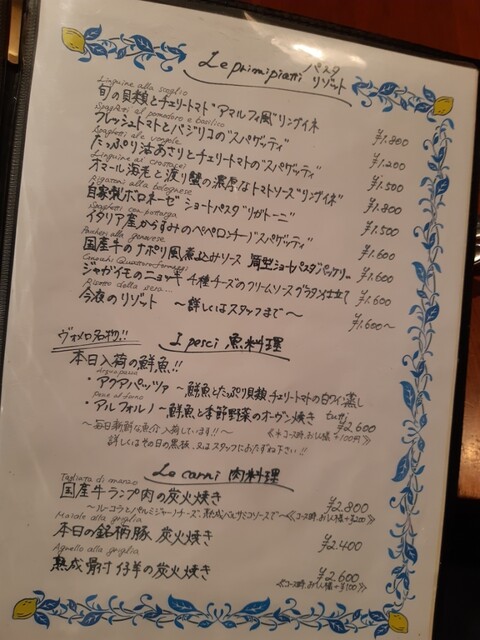 Le primi piatti パスタ
リゾット
Linguine alla scoglio
旬の貝類とチェリートマト"アマルフィ風"リングイネ ¥1.800
Spaghetti al pomodoro e basilico
フレッシュトマトとバジリコの"スパゲッティ" ¥1.200
Spaghetti alle vongole
たっぷり活あさりとチェリートマトの"スパゲッティ" ¥1.500
Linguine ai crostacei
オマール海老と渡り蟹の濃厚なトマトソース"リングイネ" ¥1.800
Rigatoni alla bolognese
自家製ボロネーゼ ショートパスタ"リガトーニ" ¥1.500
Spaghetti con bottarga
イタリア産からすみのペペロンチーノ"スパゲッティ" ¥1.600
Paccheri alla genovese
国産牛のナポリ風煮込みソース 筒型ショートパスタ"パッケリ" ¥1.600
Gnocchi Quattro formaggi
ジャガイモのニョッキ 4種チーズのクリームソースグラタン仕立て ¥1.600
Risotto della sera...
今夜のリゾット 〜詳しくはスタッフまで〜 ¥1.600〜
ヴォメロ名物!! I pesci 魚料理
本日入荷の鮮魚!!
Acqua pazza
・アクアパッツァ 〜鮮魚とたっぷり貝類、チェリートマトの白ワイン蒸し
Pesce al forno
・アルフォルノ 〜鮮魚と季節野菜のオーブン焼き tutti ¥2.600
〜毎日新鮮な魚介入荷しています!!〜
詳しくはその日の黒板、又はスタッフにおたずね下さい!!
Le carni 肉料理
Tagliata di manzo
国産牛ランプ肉の炭火焼き ¥2.800
〜ルーコラとパルミジャーノチーズ、熟成バルサミコソースで〜
Maiale alla griglia
本日の銘柄豚 炭火焼き ¥2.400
Agnello alla griglia
熟成骨付仔羊の炭火焼き ¥2.600